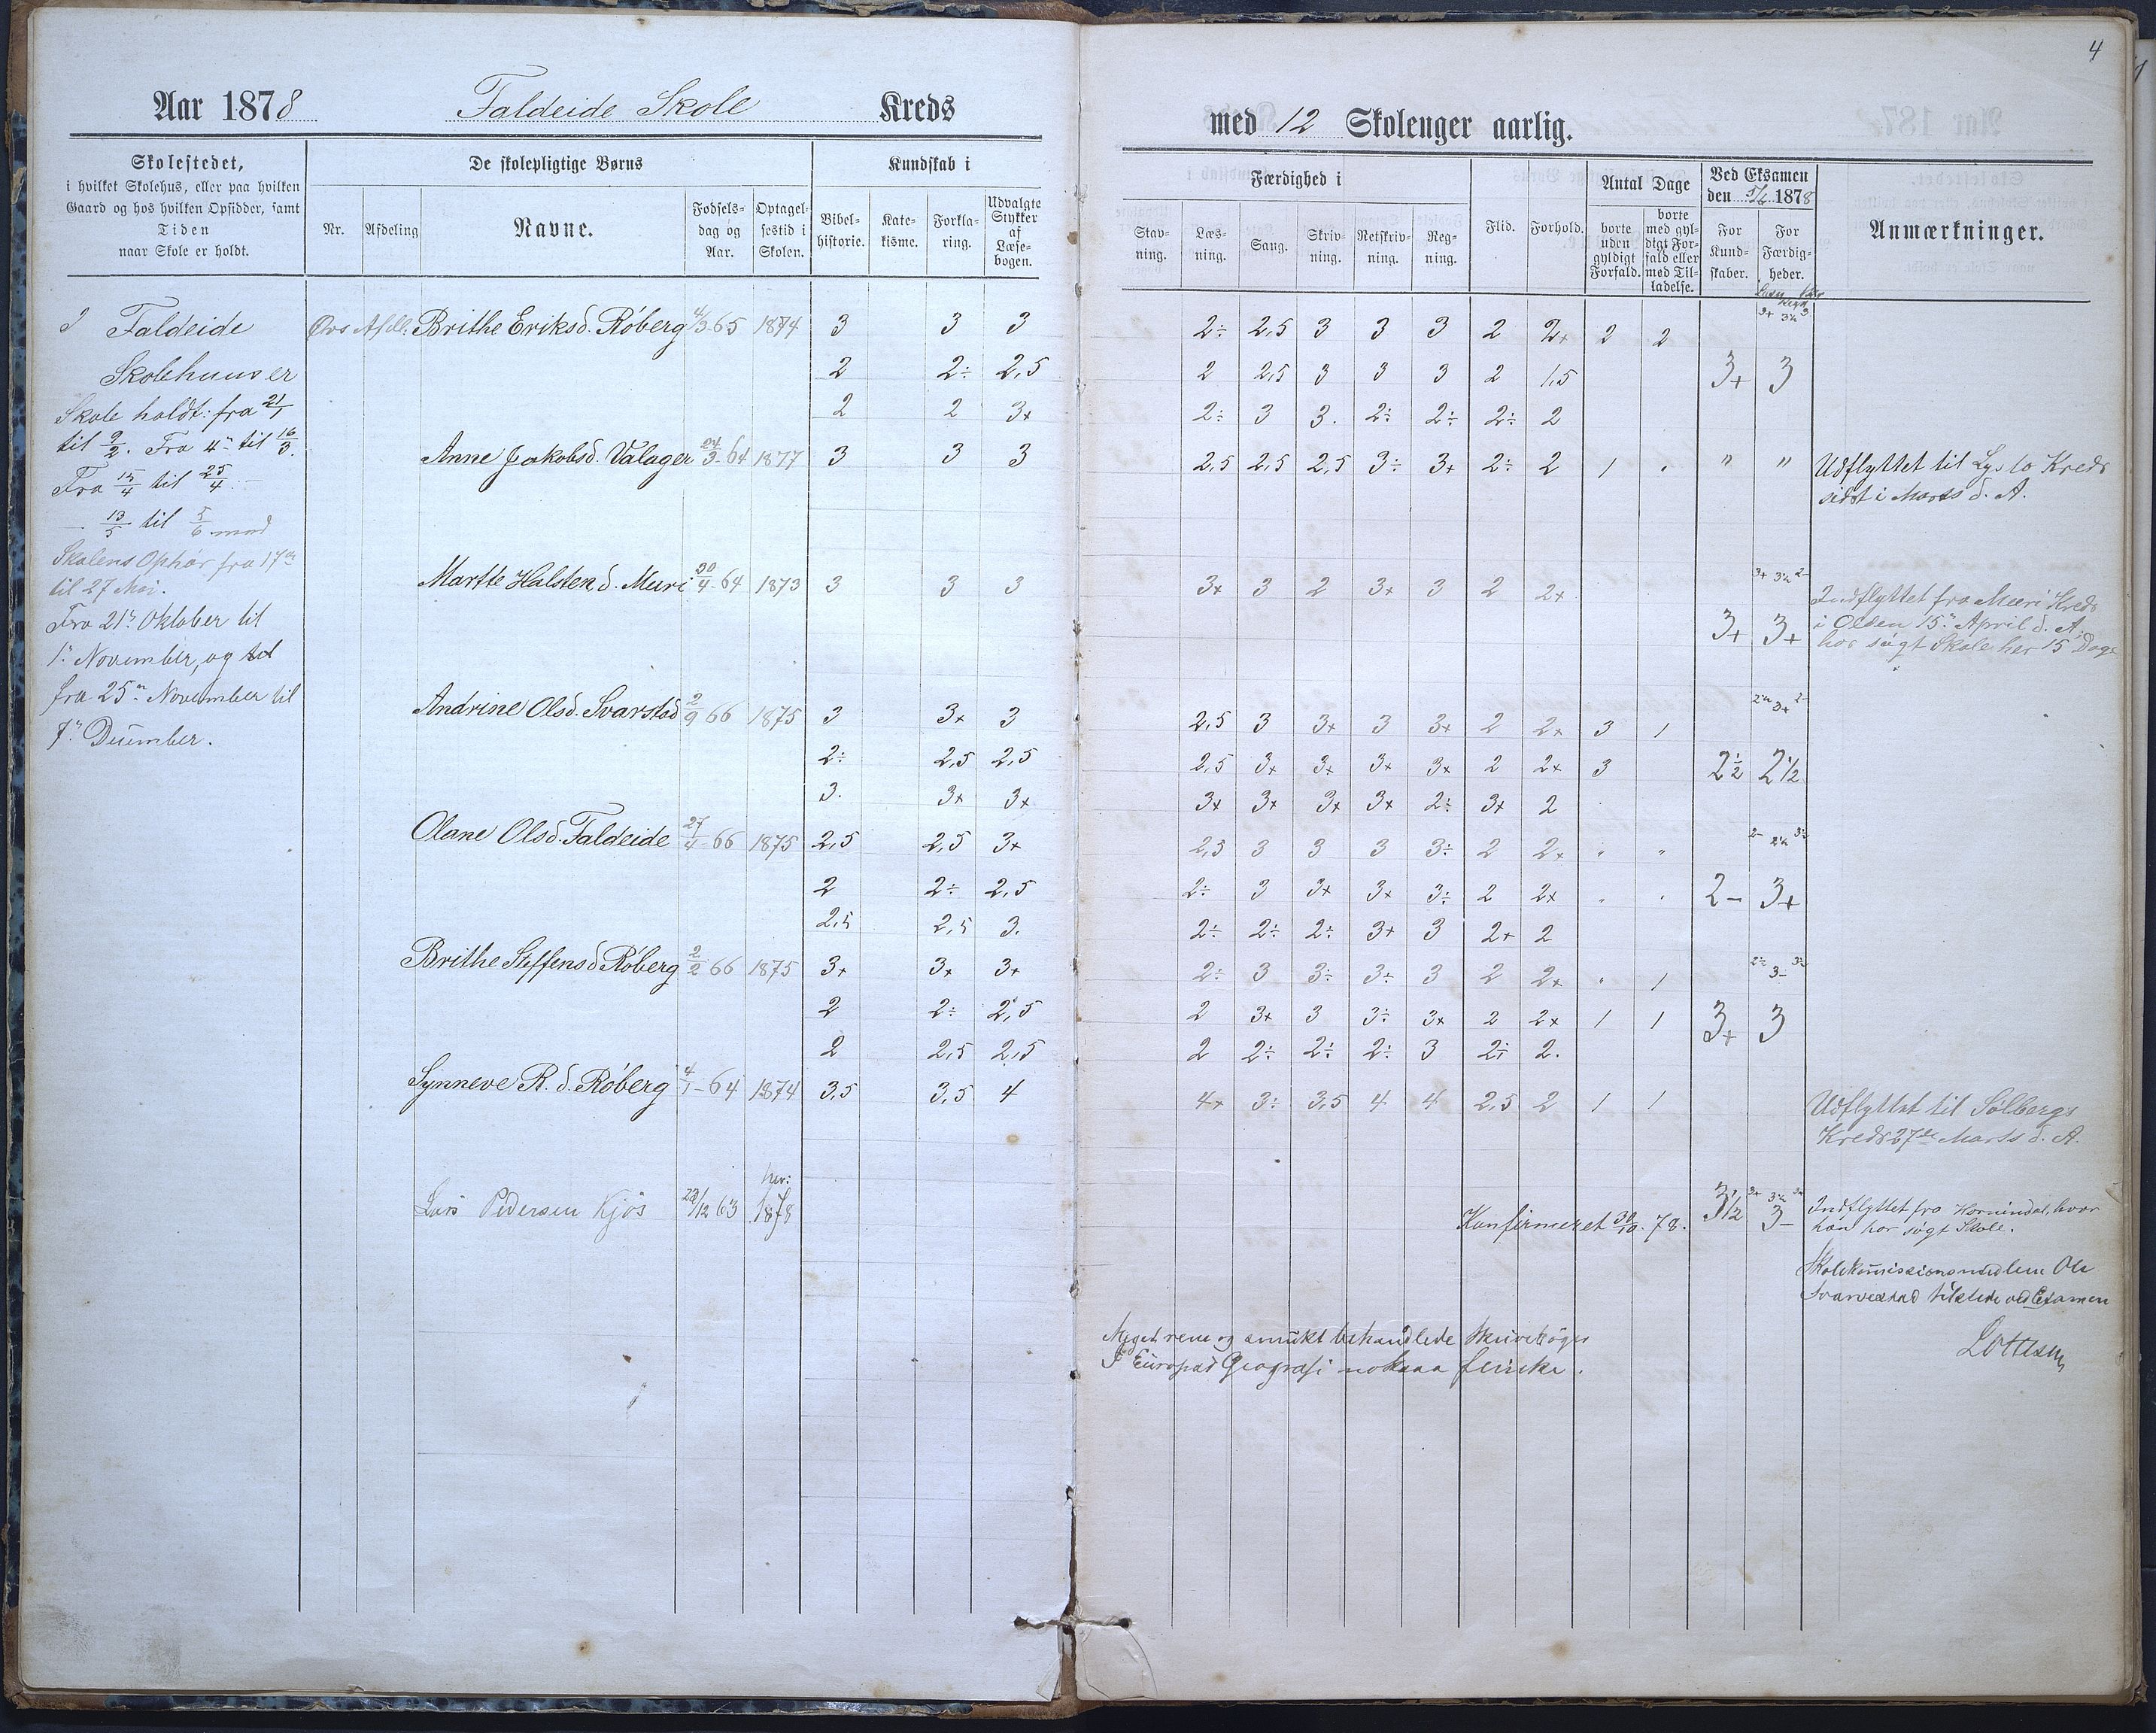 4
Aar 1878 Faldeide Skole Kreds
med 12 Skolenger aarlig.
Skolestedet,
i hvilket Skolehus, eller paa hvilken
Gaard og hos hvilken Opsidder, samt
Tiden
naar Skole er holdt.
De skolepligtige Børns
Nr.
Afdeling
Navne.
Fødsels-
dag og
Aar.
Optagel-
sestid i
Skolen.
Kundskab i
Bibel-
historie.
Kate-
kisme.
Forkla-
ring.
Udvalgte
Stykker
af
Læse-
bogen.
Færdighed i
Stav-
ning.
Læs-
ning.
Sang.
Skriv-
ning.
Retskriv-
ning.
Reg-
ning.
Flid.
Forhold.
Antal Dage
borte
uden
gyldigt
Forfald.
borte
med gyl-
digt For-
fald eller
med Til-
ladelse.
Ved Eksamen
den 5/6 1878
For
Kund-
skaber.
For
Færdig-
heder.
Anmærkninger.
I Faldeide
Skolehuus er
Skole holdt: fra 21/1
til 9/2. Fra 4de til 16/3.
Fra 15/4 til 25/4.
13/5 til 5/6 med
Skolens Ophør fra 17de
til 27 Mai.
Fra 21de Oktober til
1ste November, og
fra 25de November til
7de December.
Øvs Afdl. Brithe Eriksd. Røberg 4/3-65 1874 3 3 3 2÷ 2,5 3 3 3 2 2+ 2 2
2 2÷ 2,5 2 2,5 3 3 3 2 1,5 3+ 3
2 2 3+ 2÷ 3 3. 2÷ 2÷ 2÷ 2
Anne Jakobsd. Valager 24/3-64 1877 3 3 3 2,5 2,5 2,5 3÷ 3+ 2÷ 2 1 " " Udflyttet til Lyslo Kreds
sidst i Marts d. A.
Marthe Halstend. Muri 30/4-64 1873 3 3 3 3+ 3 2 3+ 3 2 2+ 3+ 3+
Indflyttet fra Mæri Kreds
i Olden 15de April d. A.
har søgt Skole her 15 Dage
Andrine Olsd. Svarstad 2/9 66 1875 3 3+ 3 2,5 3 3+ 3 3+ 2 2+ 3 1
2÷ 2,5 2,5 2,5 3+ 3+ 3+ 3+ 2 2+ 3 2½ 2½
3. 3+ 3+ 3+ 3+ 3+ 3+ 2÷ 3+ 2
Olane Olsd. Faldeide 27/4-66 1875 2,5 2,5 3+ 2,5 3 3 3 3÷ 2 2+ " "
2 2÷ 2,5 2÷ 3 3+ 3+ 3÷ 2 2+ 2- 3+
2,5 2,5 3. 2÷ 2÷ 2÷ 3+ 3 2+ 2
Brithe Steffensd Røberg 2/2 66 1875 3+ 3+ 3+ 2÷ 3 3÷ 3÷ 3 2 2+ " 1
2 2÷ 2,5 2 3+ 3 3÷ 3+ 2 2+ 1 1 3+ 3
2 2,5 2,5 2 2÷ 2÷ 2÷ 3 2÷ 2.
Synneve R. d. Røberg 4/1-64 1874 3,5 3,5 4 4+ 3÷ 3,5 4 4 2,5 2 1 1 Udflyttet til Sølbergs
Kreds 27de Marts d. A.
Lars Pedersen Kjøs 23/12 63 her: 1878 Konfirmeret 30/10. 78. 3½ 3- Indflyttet fra Hornindal, hvor
han har søgt Skole.
Skolekommissionsmedlem Ole
Svarvestad tilstede ved Examen
Meget rene og smukt behandlede Skrivebøger
I Europas Geografi